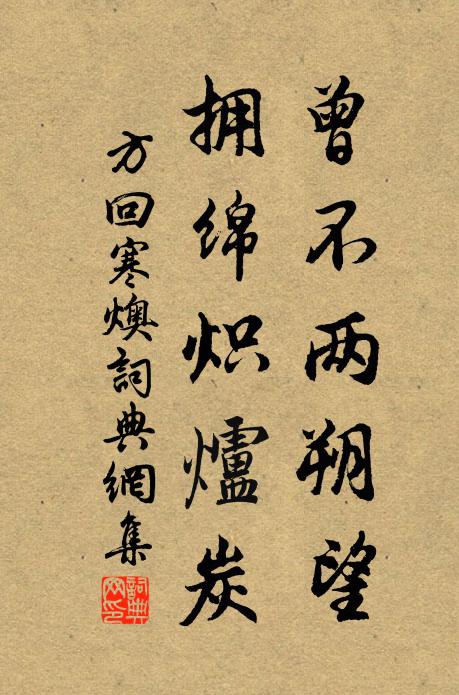 曾不两朔望
拥绵炽爐炭
方回寒燠詞典網集
詞典网印